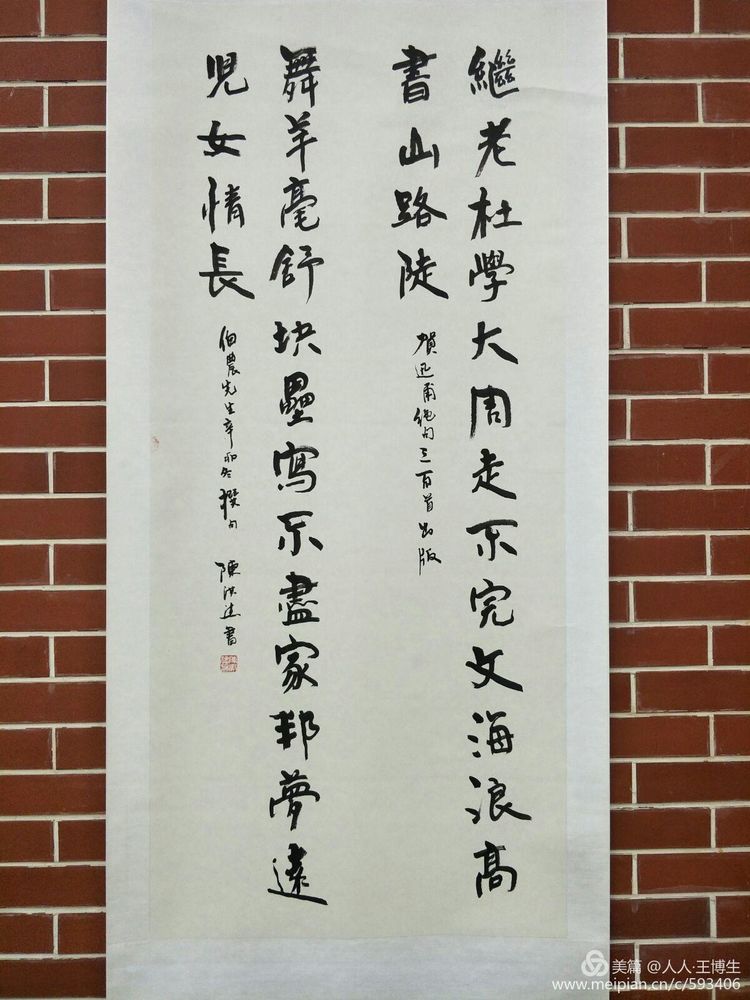 繼老杜學大周走不完文海浪高
書山路陡
賀迅甫絶句三百首出版
舞羊毫舒块壘寫不盡家邦夢遠
児女情長
伯農先生辛卯冬撰句 陳洪達書
美篇 @人人·王博生
www.meipian.cn/c/593406